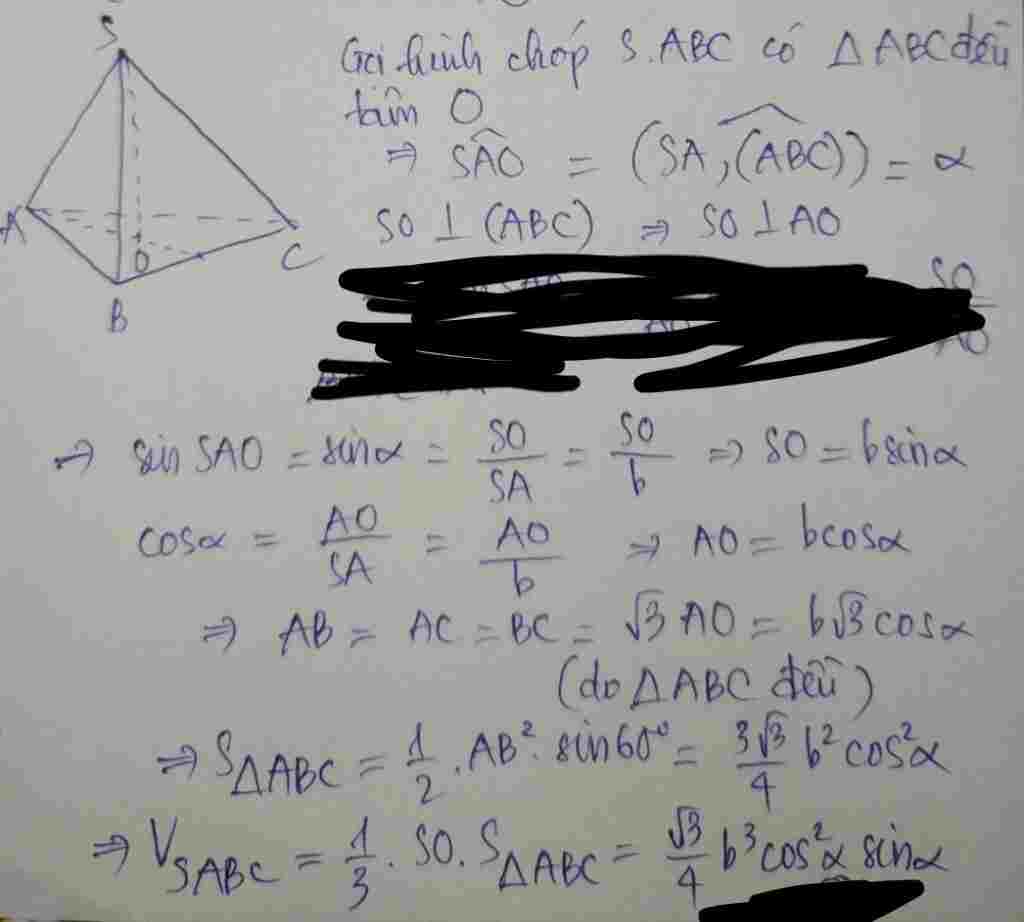 S
A
B
C
O
Gọi hình chóp S.ABC có ΔABC đều
tâm O
⇒ ∠SAO = (SA,(ABC)) = α
SO ⊥ (ABC) ⇒ SO ⊥ AO
SO
AO
⇒ sin SAO = sinα = SO/SA = SO/b ⇒ SO = bsinα
cosα = AO/SA = AO/b ⇒ AO = bcosα
⇒ AB = AC = BC = √3 AO = b√3 cosα
(do ΔABC đều)
⇒ S_ΔABC = 1/2 . AB². sin60° = 3√3/4 b² cos²α
⇒ V_SABC = 1/3 . SO. S_ΔABC = √3/4 b³ cos²α sinα